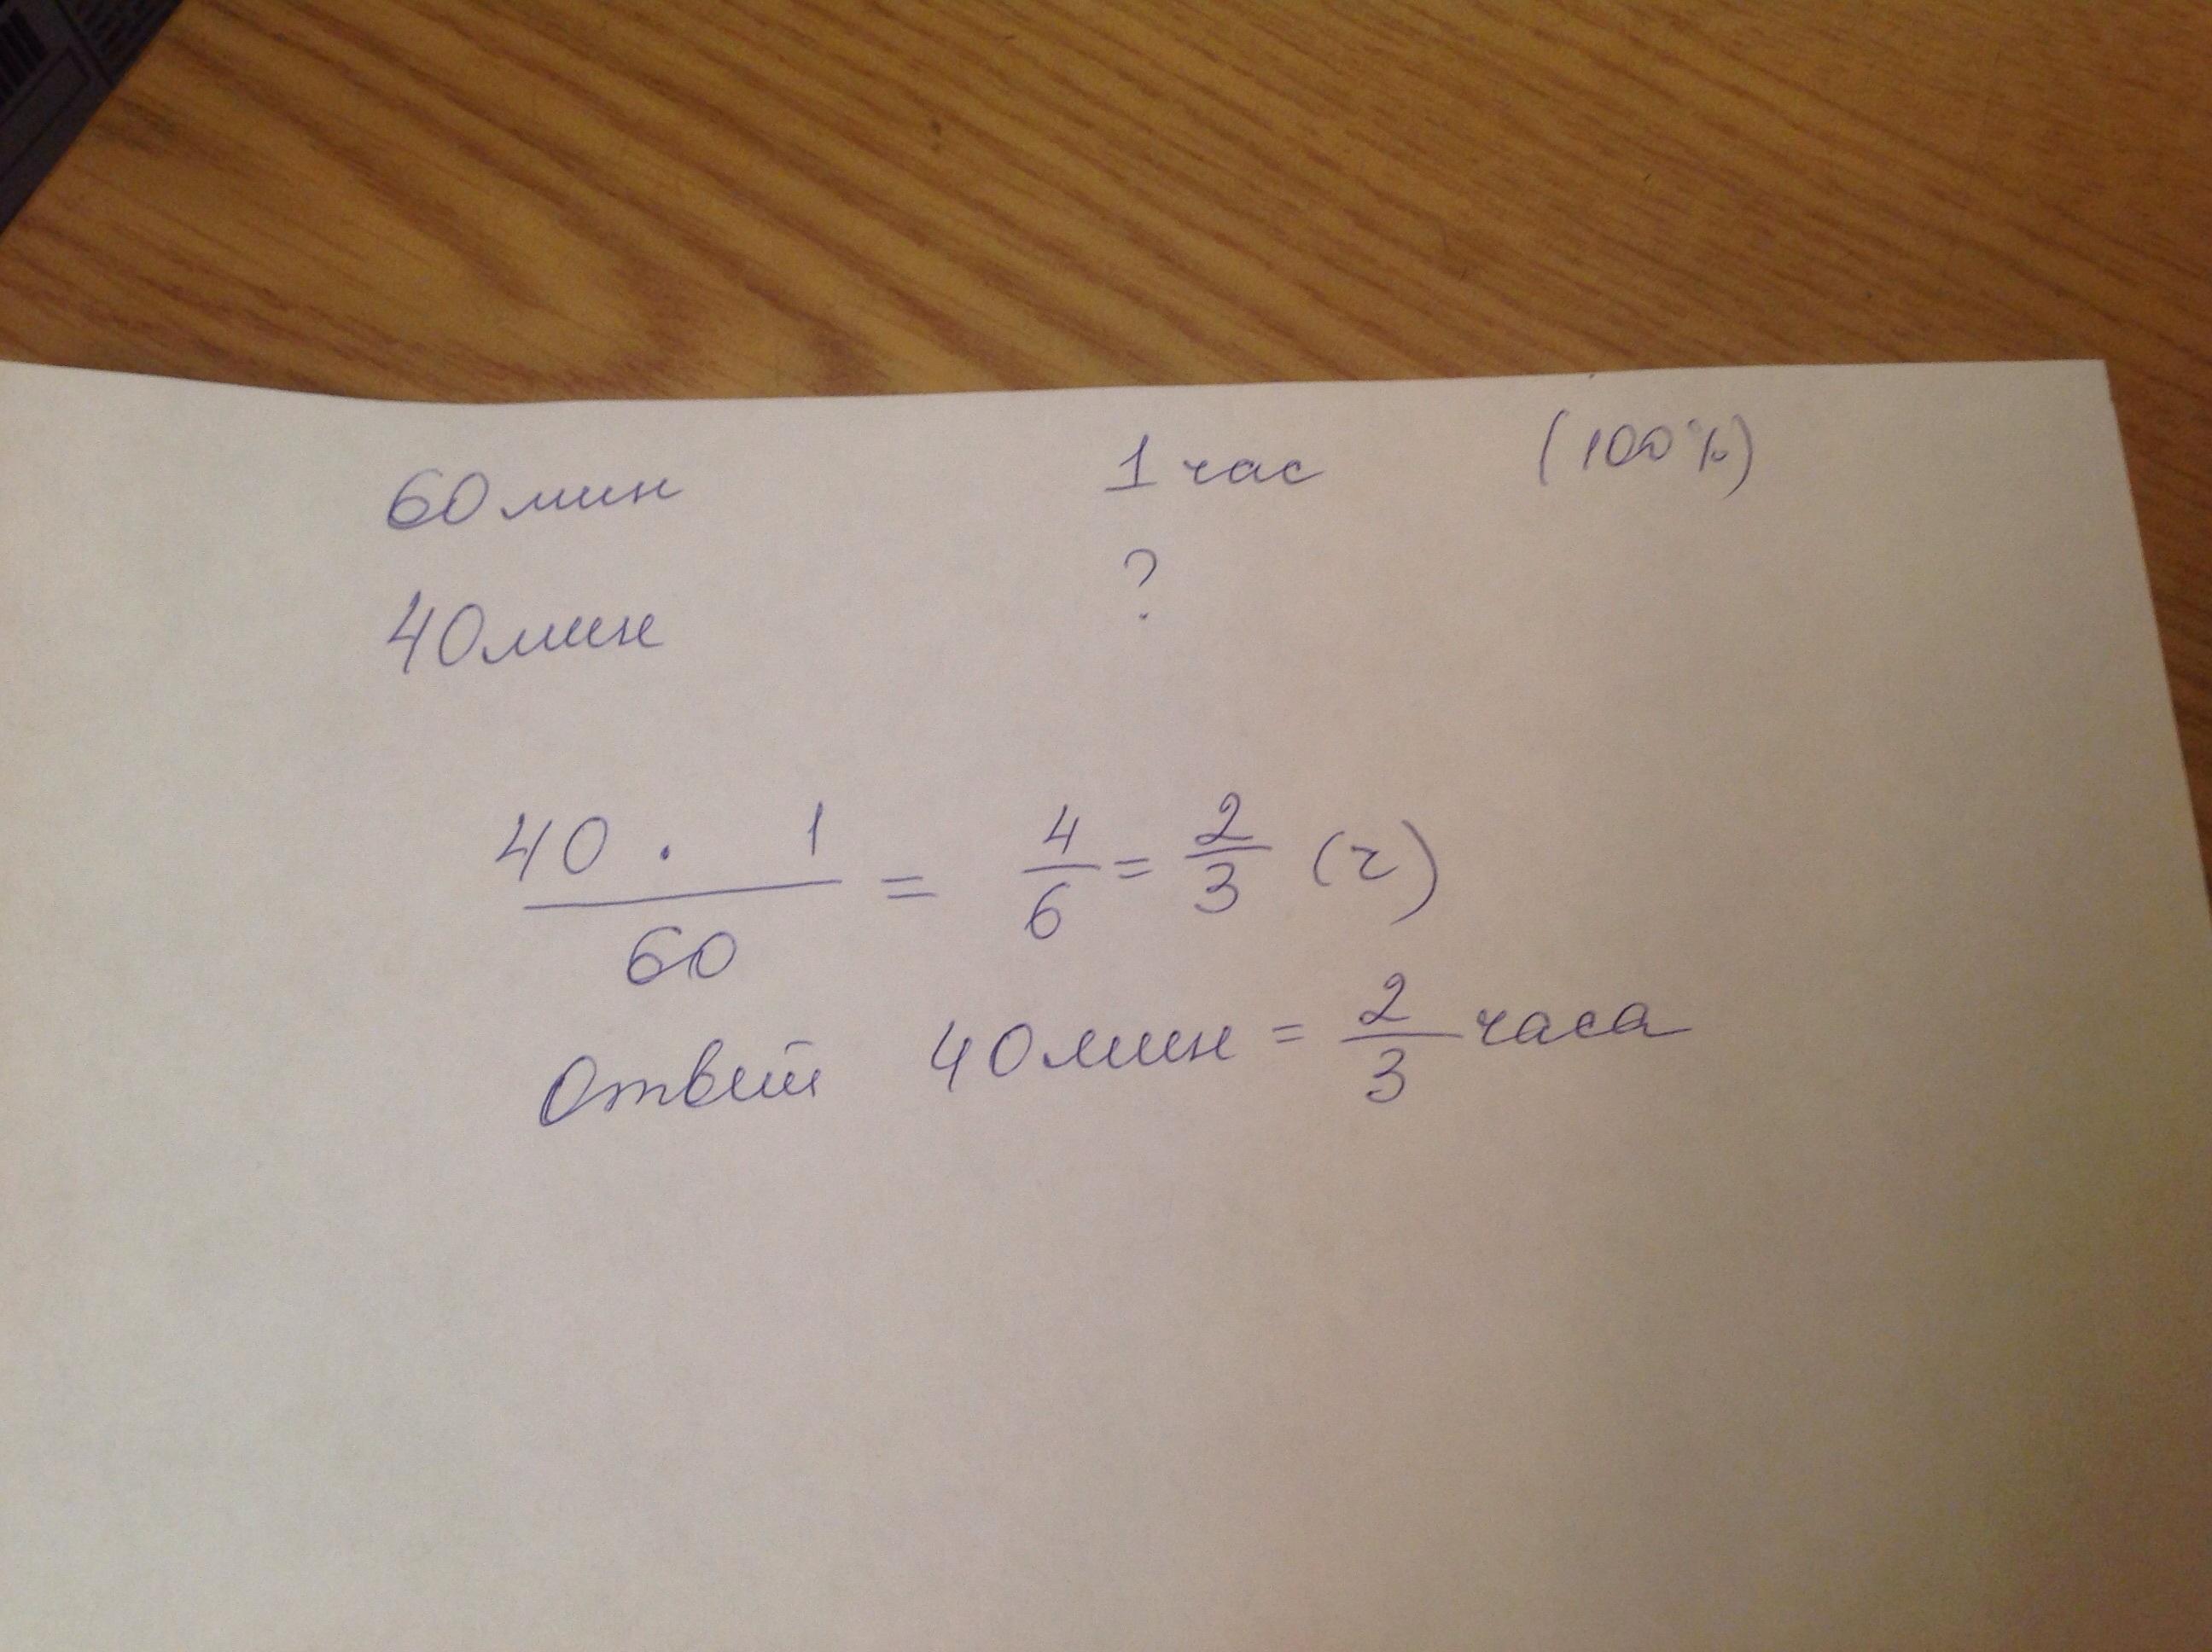 60 мин 1 час (100%)
40 мин ?
40 · 1 / 60 = 4/6 = 2/3 (ч)
Ответ 40 мин = 2/3 часа